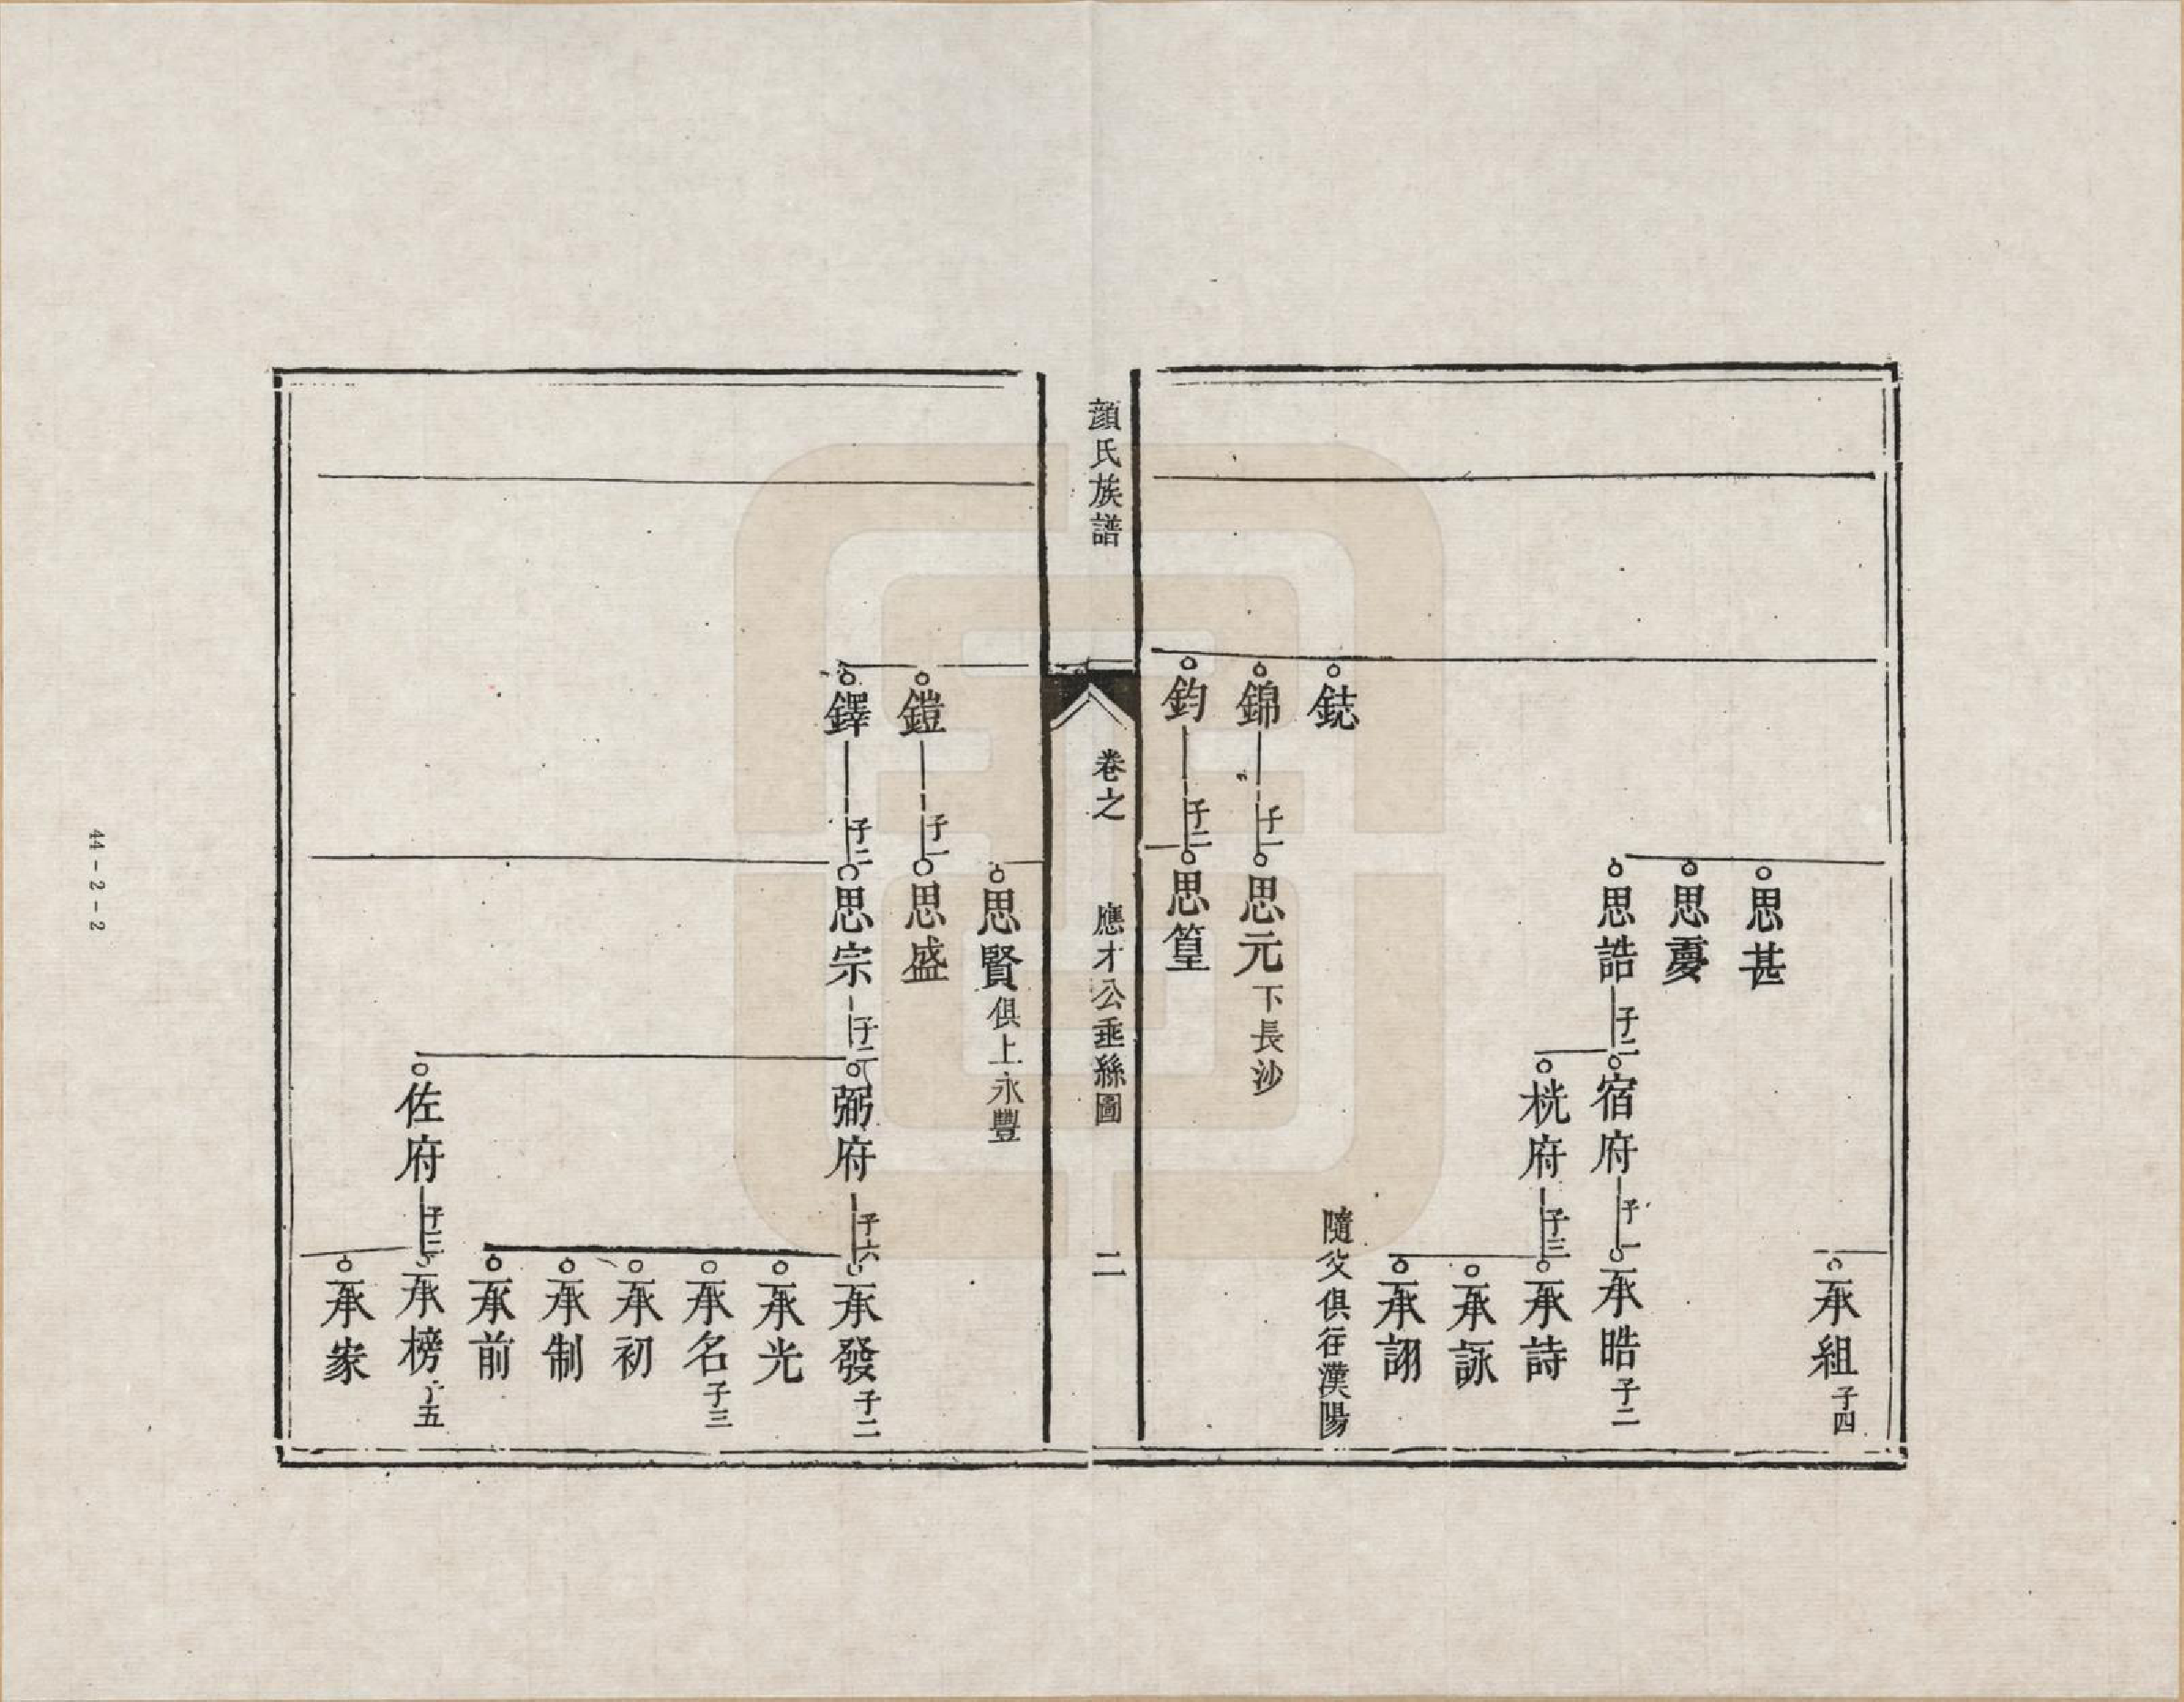 承組子四
思甚
思憂
思誥子二
宿府子一
承晧子二
桄府子三
承詩
承詠
承詡
隨父俱往漢陽
鋕
錦子一
思元下長沙
鈞子二
思篁
顏氏族譜
卷之
應才公垂絲圖
二
思賢俱上永豐
鎧子一
思盛
鐸子二
思宗子二
弼府子六
承發子二
承光
承名子三
承初
承制
承前
佐府子三
承榜子五
承家
44-2-2